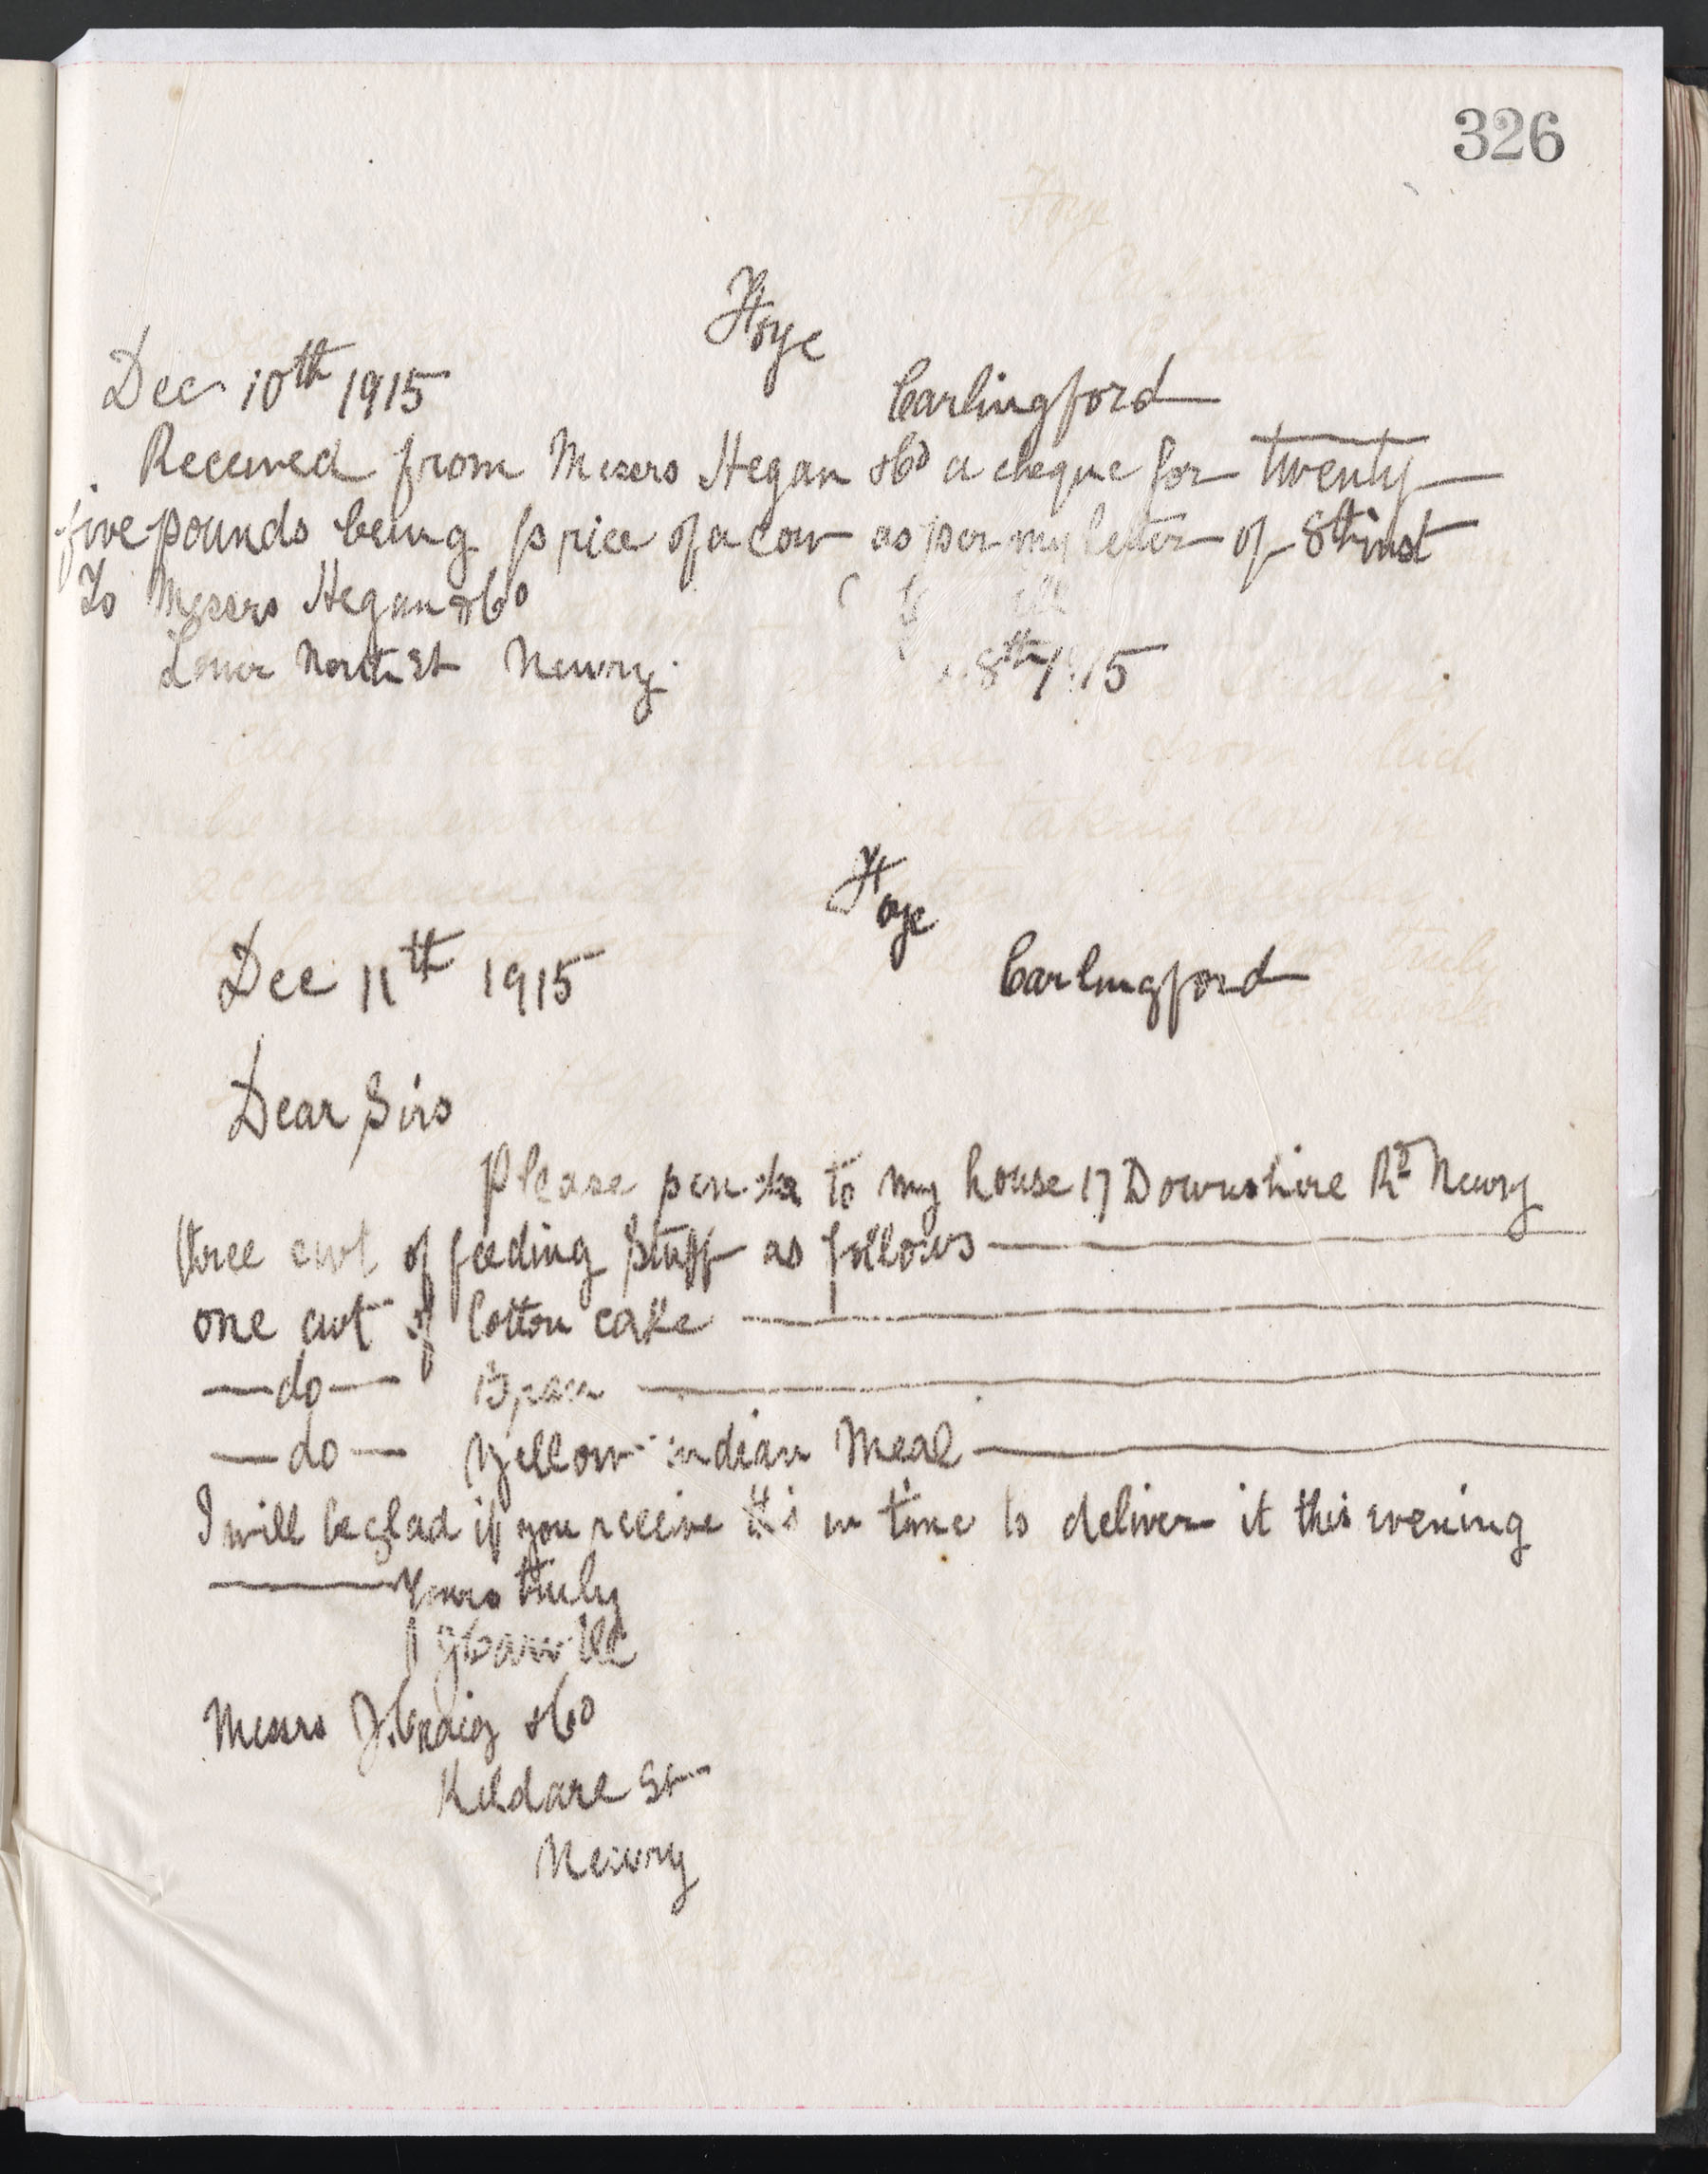 326
Foye
Dec 10th 1915 Carlingford
Received from Messrs Hegan & Co a cheque for twenty
five pounds being price of a cow as per my letter of 8th inst
To Messrs Hegan & Co
Lower North St Newry. 8th / 15
Foye
Dec 11th 1915 Carlingford
Dear Sirs
Please send to my house 17 Downshire Rd Newry
three cwt of feeding stuff as follows
one cwt of Cotton cake
—do— Bran
—do— Yellow indian Meal
I will be glad if you receive this in time to deliver it this evening
Yours truly
Carville
Messrs J. Craig & Co
Kildare St
Newry